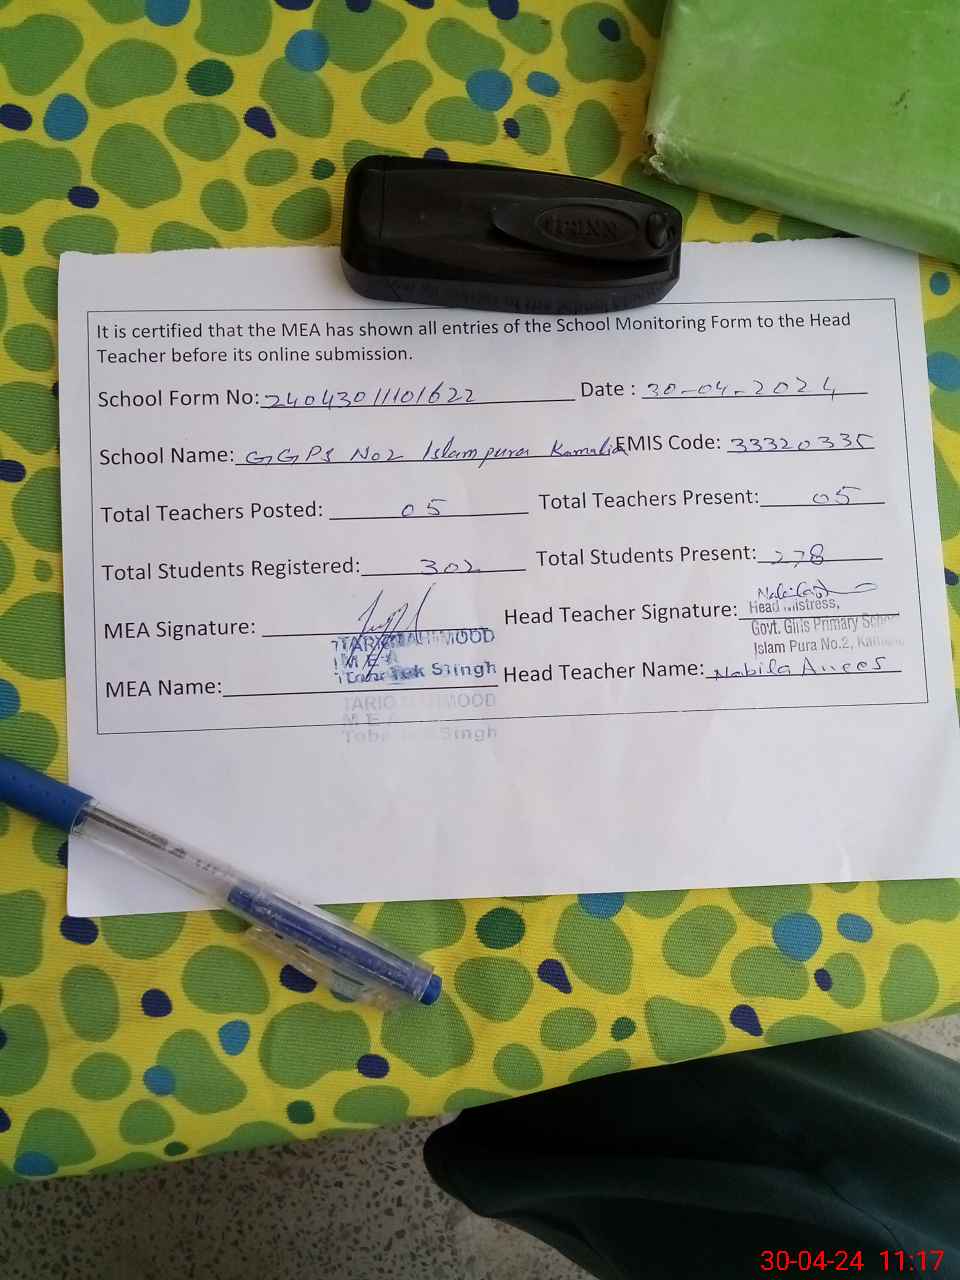 It is certified that the MEA has shown all entries of the School Monitoring Form to the Head
Teacher before its online submission.
School Form No: 24043011101622 Date : 30-04-2024
School Name: GGPS No2 Islampura Kamalia EMIS Code: 33320335
Total Teachers Posted: 05 Total Teachers Present: 05
Total Students Registered: 302 Total Students Present: 278
MEA Signature: Head Teacher Signature:
Head Mistress,
Govt. Girls Primary School
Islam Pura No.2,
MEA Name: Head Teacher Name: Nabila Anees
MEA
Tek Singh
TARIQ MOOD
MEA
Toba Singh
30-04-24 11:17